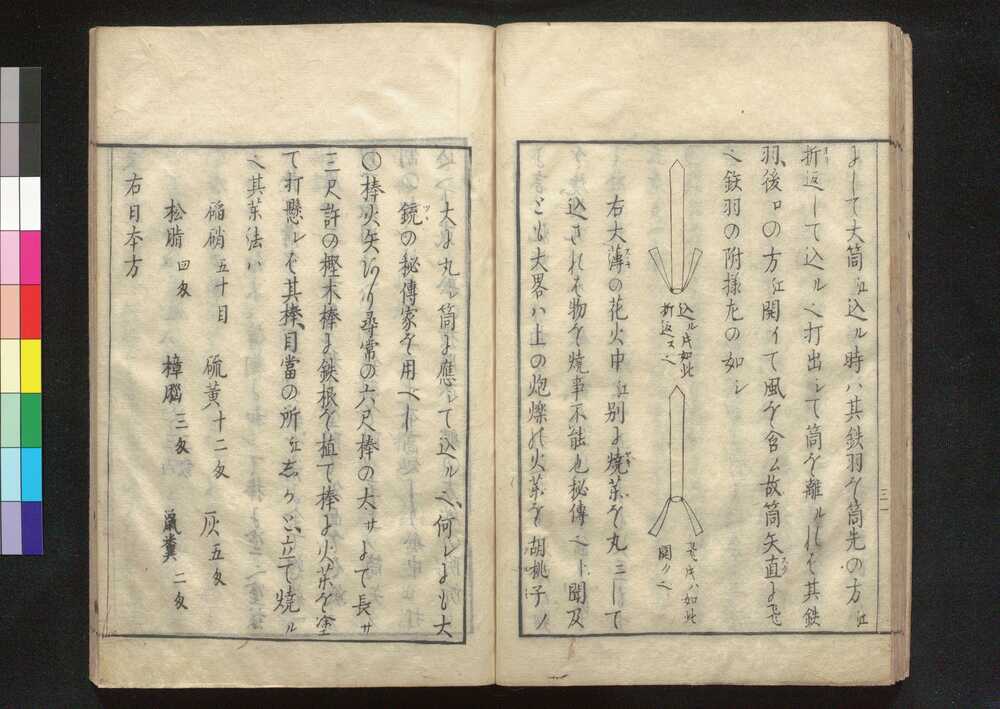 よして大筒江込ル時ハ其鉄羽を筒先の方江
折返して込ルヘ打出シて筒を離ルれを其鉄
羽後口の方江開イて風を含ム故筒矢直よ飛
ヘ鉄羽の附様左の如シ
込ル片如此
折返スヘ
飛片ハ如此
開クヘ
右大薄の花火中江別よ焼薬を丸ニして
込されハ物を焼事不能也秘傳ヘト聞及
とも大畧ハ上の炮爍の火薬を胡桃子ノ
大よ丸シ筒よ應して込ルヘ何レよも大
鏡の秘傳家を用ヘし
〇棒火矢あり尋常の六尺棒の太サよて長サ
三尺許の樫木棒よ鉄根を植て棒よ火薬を塗
て打懸レハ其棒目當の所江志かと立て焼ル
ヘ其薬法ハ
焔硝 五十目 硫黄 十二匁 灰 五匁
松脂 四匁 樟腦 三匁 鼠糞 二匁
右日本方